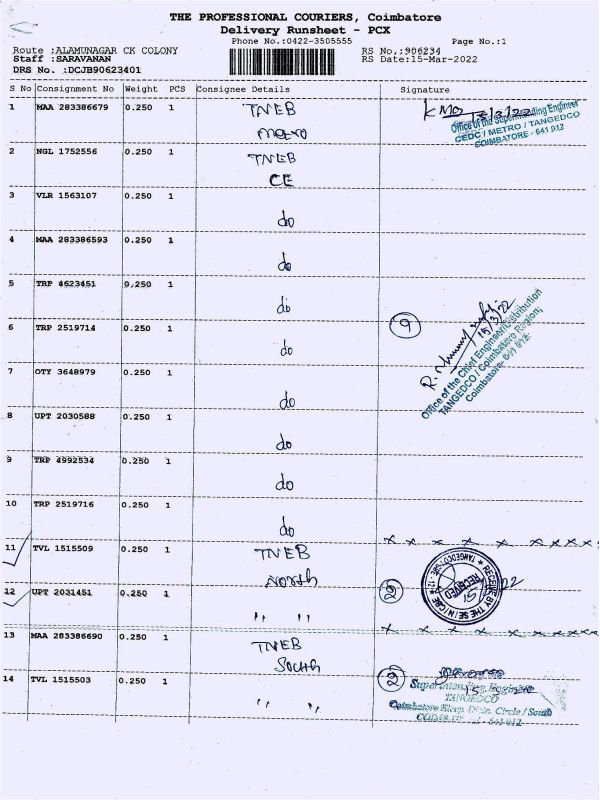 THE PROFESSIONAL COURIERS, Coimbatore
Delivery Runsheet - PCX
Phone No.:0422-3505555 Page No.:1
Route :ALAMUNAGAR CK COLONY RS No,:906234
Staff :SARAVANAN RS Date:15-Mar-2022
DRS No. :DCJB90623401
S No Consignment No Weight PCS Consignee Details Signature
1 MAA 283386679 0.250 1 TNEB
Metro
15/3/22
Office of the Superintending Engineer
CEDC / METRO / TANGEDCO
COIMBATORE - 641 012
2 NGL 1752556 0.250 1 TNEB
CE
3 VLR 1563107 0.250 1 do
4 MAA 283386593 0.250 1 do
5 TRP 4623451 0.250 1 do
6 TRP 2519714 0.250 1 do
9
15/3/22
Office of the Chief Engineer/Distribution
TANGEDCO / Coimbatore Region,
Coimbatore- 641 012.
7 OTY 3648979 0.250 1 do
8 UPT 2030588 0.250 1 do
9 TRP 4992534 0.250 1 do
10 TRP 2519716 0.250 1 do
x x x x x x x x x x
11 TVL 1515509 0.250 1 TNEB
North
12 UPT 2031451 0.250 1 " "
2
RECEIVED
x x x x x x x x x x
13 MAA 283386690 0.250 1 TNEB
South
14 TVL 1515503 0.250 1 " "
2
Superintending Engineer
TANGEDCO
Coimbatore Elecy. Distn. Circle / South